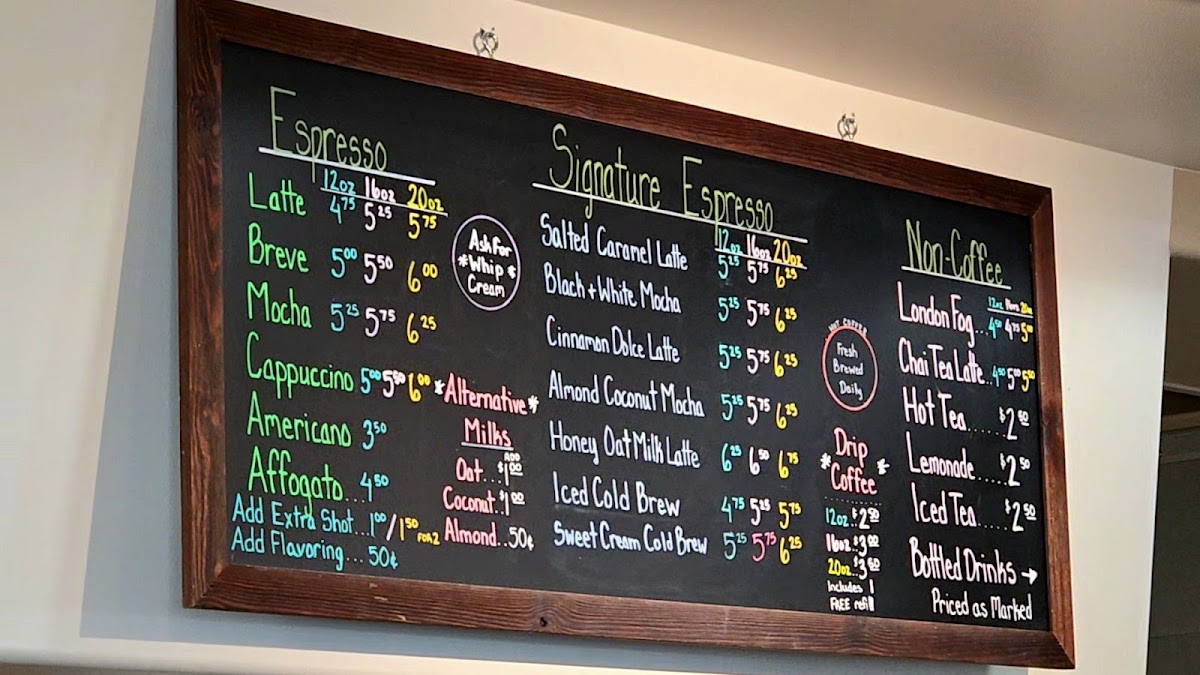 Espresso
12oz 16oz 20oz
Latte 4.75 5.25 5.75
Breve 5.00 5.50 6.00
Mocha 5.25 5.75 6.25
Cappuccino 5.00 5.50 6.00
Americano 3.50
Affogato... 4.50
Add Extra Shot... 1.00/1.50 FOR 2
Add Flavoring... 50¢
Ask for
*Whip*
Cream
*Alternative*
Milks
ADD
Oat... $1.00
Coconut.. $1.00
Almond.. 50¢
Signature Espresso
12oz 16oz 20oz
Salted Caramel Latte 5.25 5.75 6.25
Black + White Mocha 5.25 5.75 6.25
Cinnamon Dolce Latte 5.25 5.75 6.25
Almond Coconut Mocha 5.25 5.75 6.25
Honey Oat Milk Latte 6.25 6.50 6.75
Iced Cold Brew 4.75 5.25 5.75
Sweet Cream Cold Brew 5.25 5.75 6.25
HOT COFFEE
Fresh
Brewed
Daily
*Drip*
Coffee
12oz.. $2.50
16oz.. $3.00
20oz.. $3.50
Includes 1
FREE refill
Non-Coffee
12oz 16oz 20oz
London Fog... 4.50 4.75 5.00
Chai Tea Latte.. 4.50 5.00 5.50
Hot Tea...... $2.50
Lemonade..... $2.50
Iced Tea..... $2.50
Bottled Drinks →
Priced as Marked